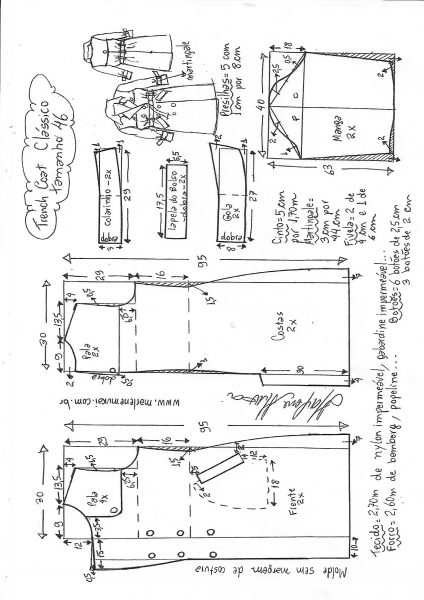 Trench Coat Clássico
tamanho 46
martingale
Presilhas = 5 com
1 cm por
8 cm
colarinho - 2x
dobra
29
9
1
1
Lapela do Bolso
dobra - 2x
17,5
5,5
Gola
2x
dobra
27
8
2
1
18
40
63
2,5
0,5
C
P
2
1
Manga
2x
2
2
Cinto = 5 cm
por 1,70m
Martingale =
3 cm por
44 cm
Fivela = 2 de
4 cm e 1 de
6 cm
95
29
16
30
13,5
9
4
0,5
6,5
Pala
2x
dobra
2
1,5
Costas
2x
30
www.marlenemukai.com.br
95
29
16
30
13,5
9
4
Pala
4x
6,5
1,5
2
12
18
Frente
2x
12
3,5
15
0,5
10
Molde sem margem de costura
Tecido = 2,70m de nylon impermeável, gabardine impermeável...
Forro = 2,60m de bemberg, popeline...
Botões = 6 botões de 2,5 cm
3 botões de 2 cm